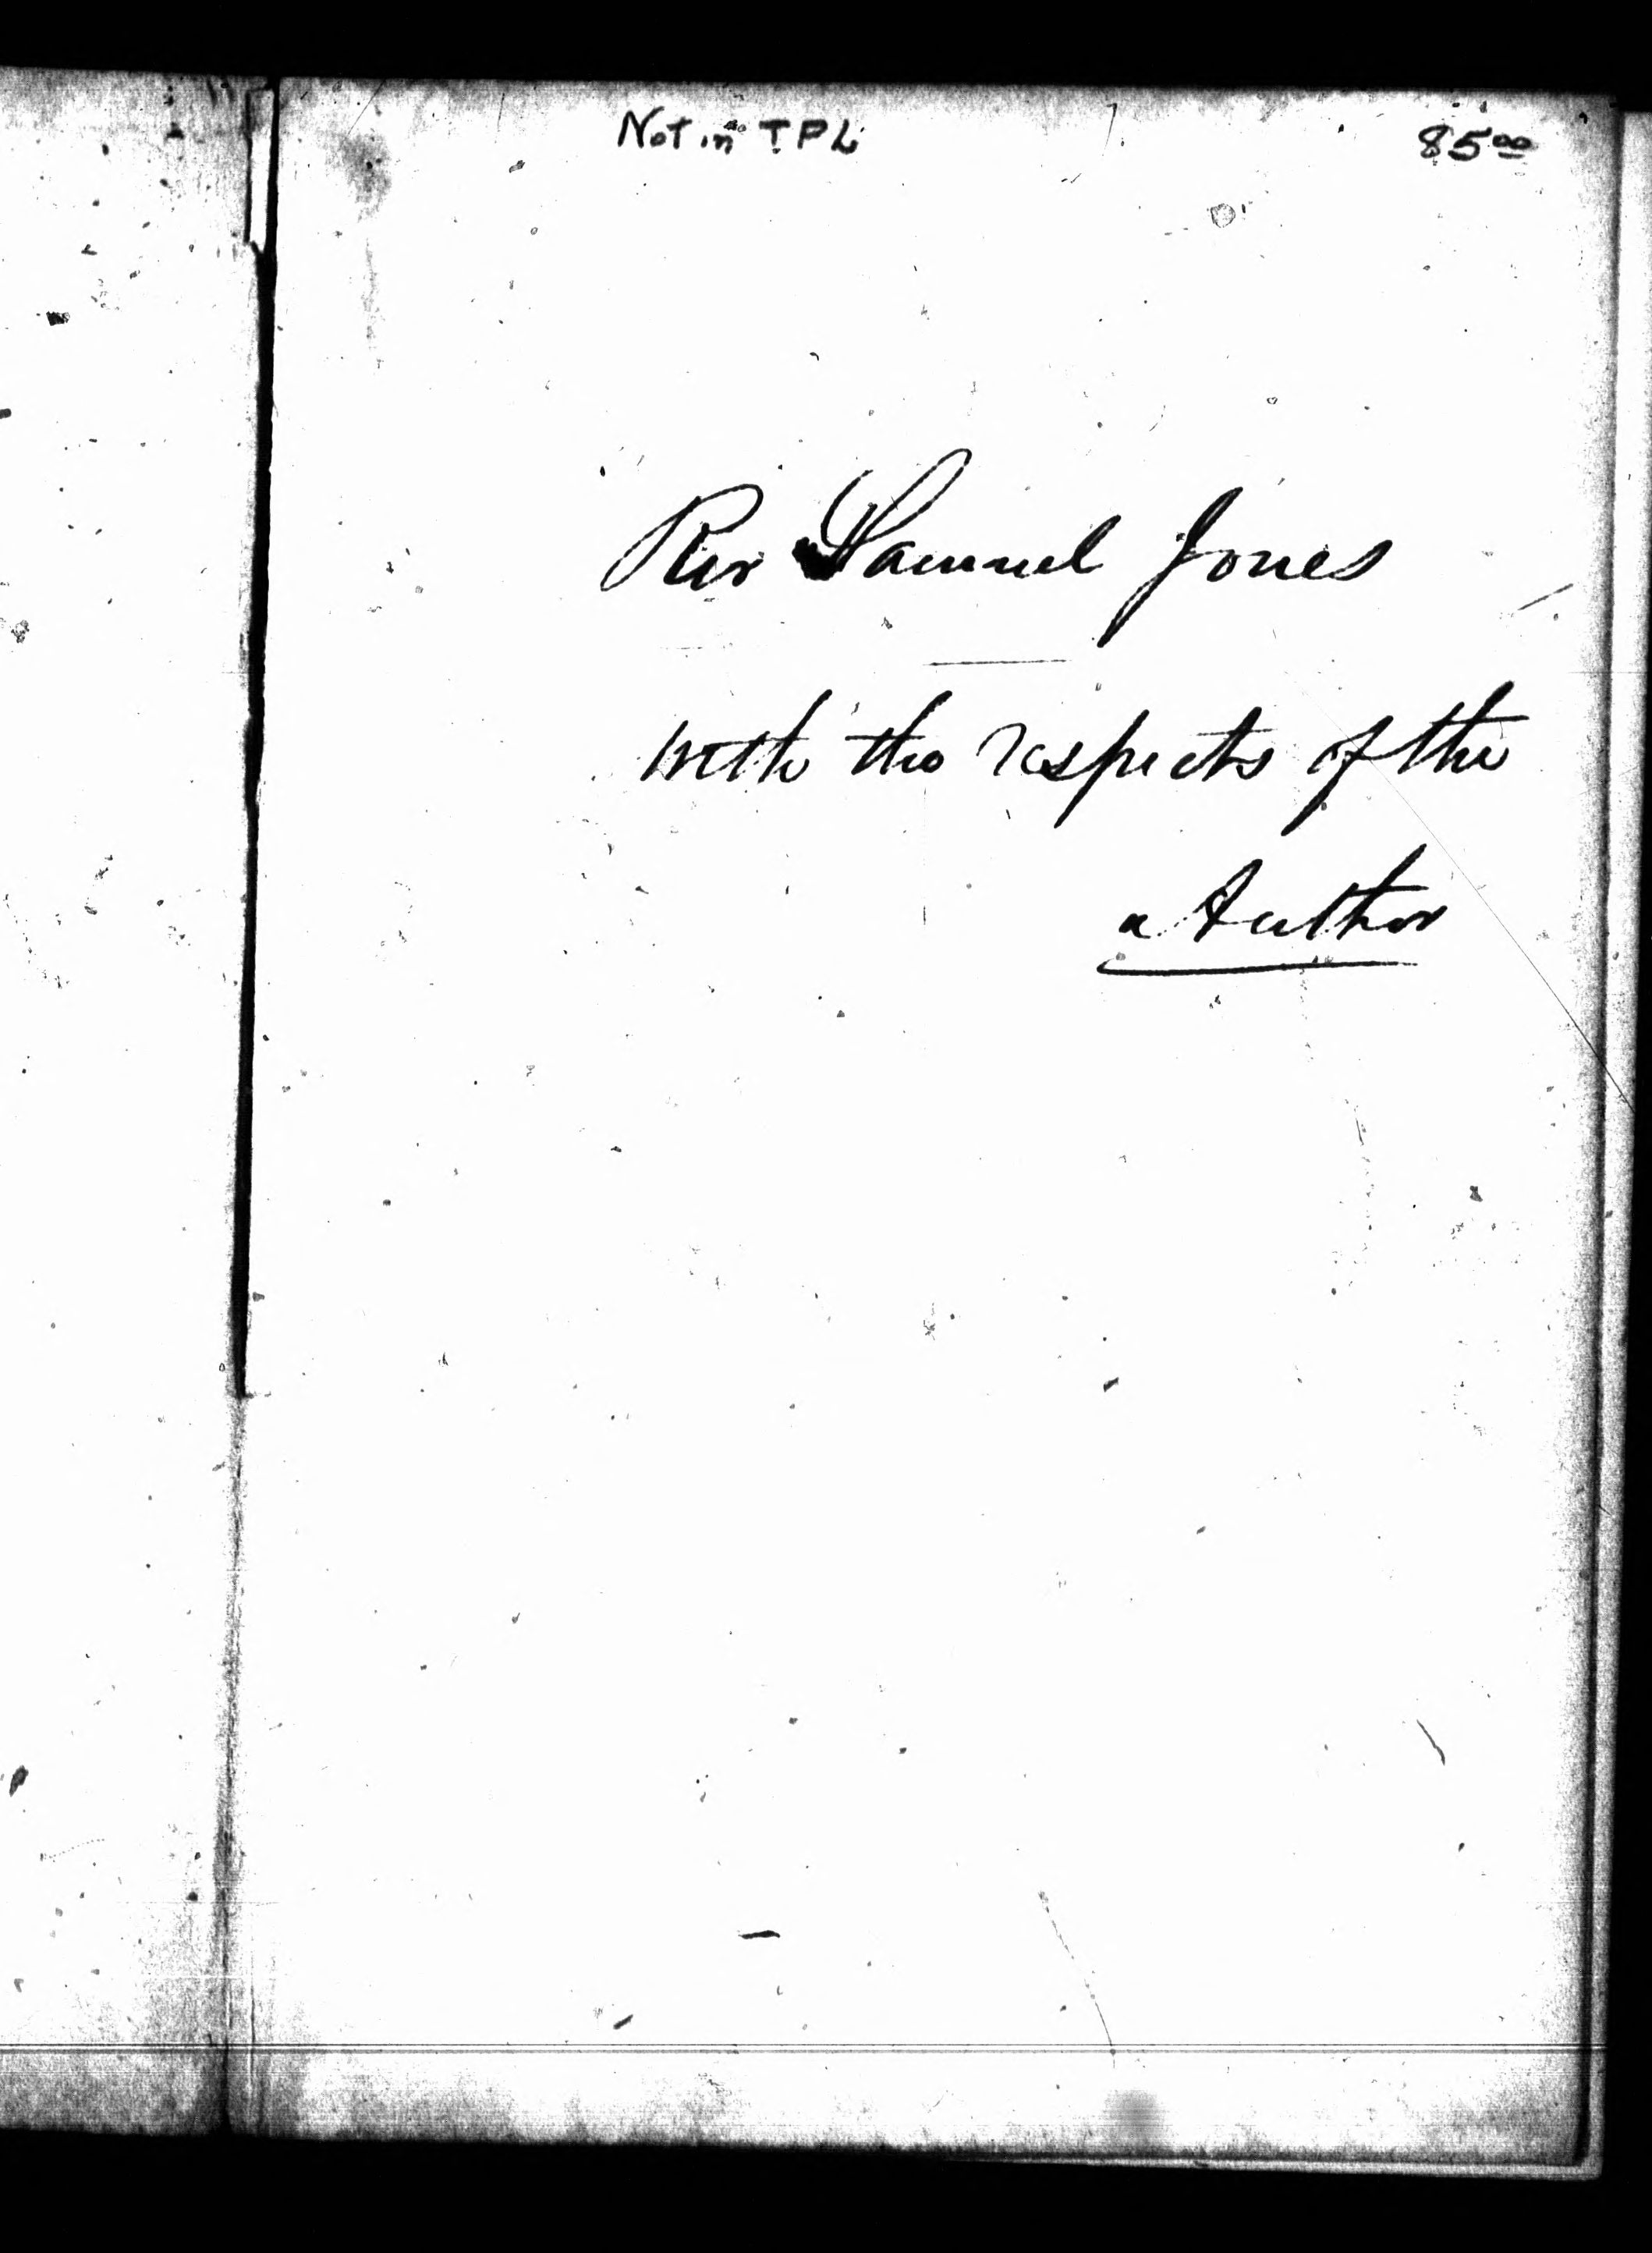 Not in TPL 85⁰⁰
Rev Samuel Jones
with the respects of the
Author